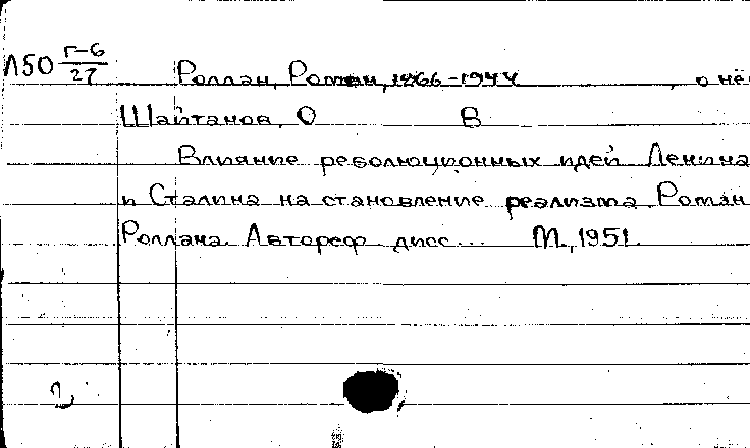 Л50 Г-6/27 Роллан, Ромен, 1866-1944, о нём
Шайтанов, О В
Влияние революционных идей Ленина
и Сталина на становление реализма Ромен
Роллана. Автореф. дисс... М., 1951.
2